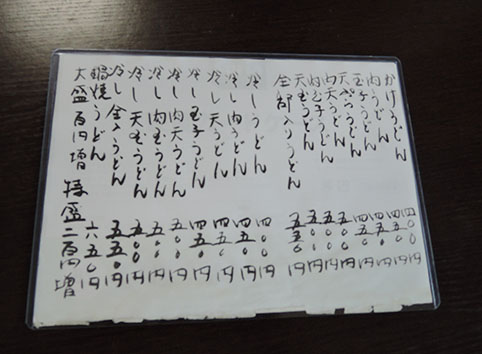 かけうどん 四〇〇円
肉うどん 四五〇円
玉子うどん 四五〇円
天ぷらうどん 四五〇円
肉天うどん 五〇〇円
肉玉子うどん 五〇〇円
天玉うどん 五〇〇円
全部入りうどん 五五〇円
冷しうどん 四〇〇円
冷し肉うどん 四五〇円
冷し天うどん 四五〇円
冷し玉子うどん 四五〇円
冷し肉天うどん 五〇〇円
冷し肉玉うどん 五〇〇円
冷し天玉うどん 五〇〇円
冷し全入うどん 五五〇円
鍋焼うどん 六五〇円
大盛百円増 特盛二百円増